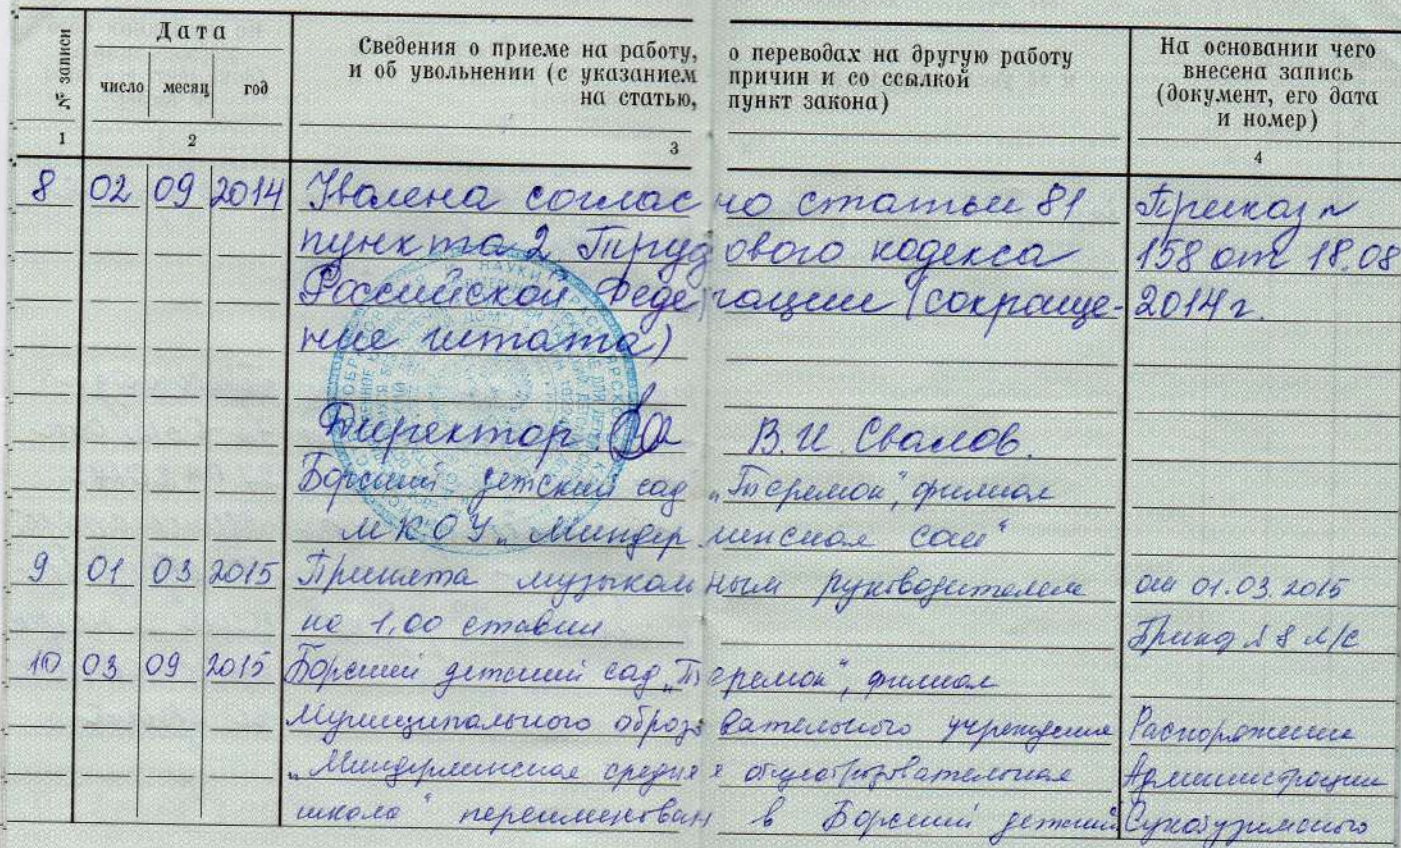 № записи
Дата
число месяц год
Сведения о приеме на работу, о переводах на другую работу
и об увольнении (с указанием причин и со ссылкой
на статью, пункт закона)
На основании чего
внесена запись
(документ, его дата
и номер)
1 2 3 4
8 02 09 2014 Уволена согласно статьи 81 Приказ №
пункта 2 Трудового кодекса 158 от 18.08
Российской Федерации (сокраще- 2014 г.
ние штата)
Директор В.И. Свалов.
Борский детский сад „Теремок", филиал
МКОУ „Миндерлинская сош"
9 01 03 2015 Принята музыкальным руководителем от 01.03.2015
на 1,00 ставки Приказ № 8 л/с
10 03 09 2015 Борский детский сад „Теремок", филиал
Муниципального образовательного учреждения Распоряжение
„Миндерлинская средняя общеобразовательная Администрации
школа" переименован в Борский детский Сухобузимского